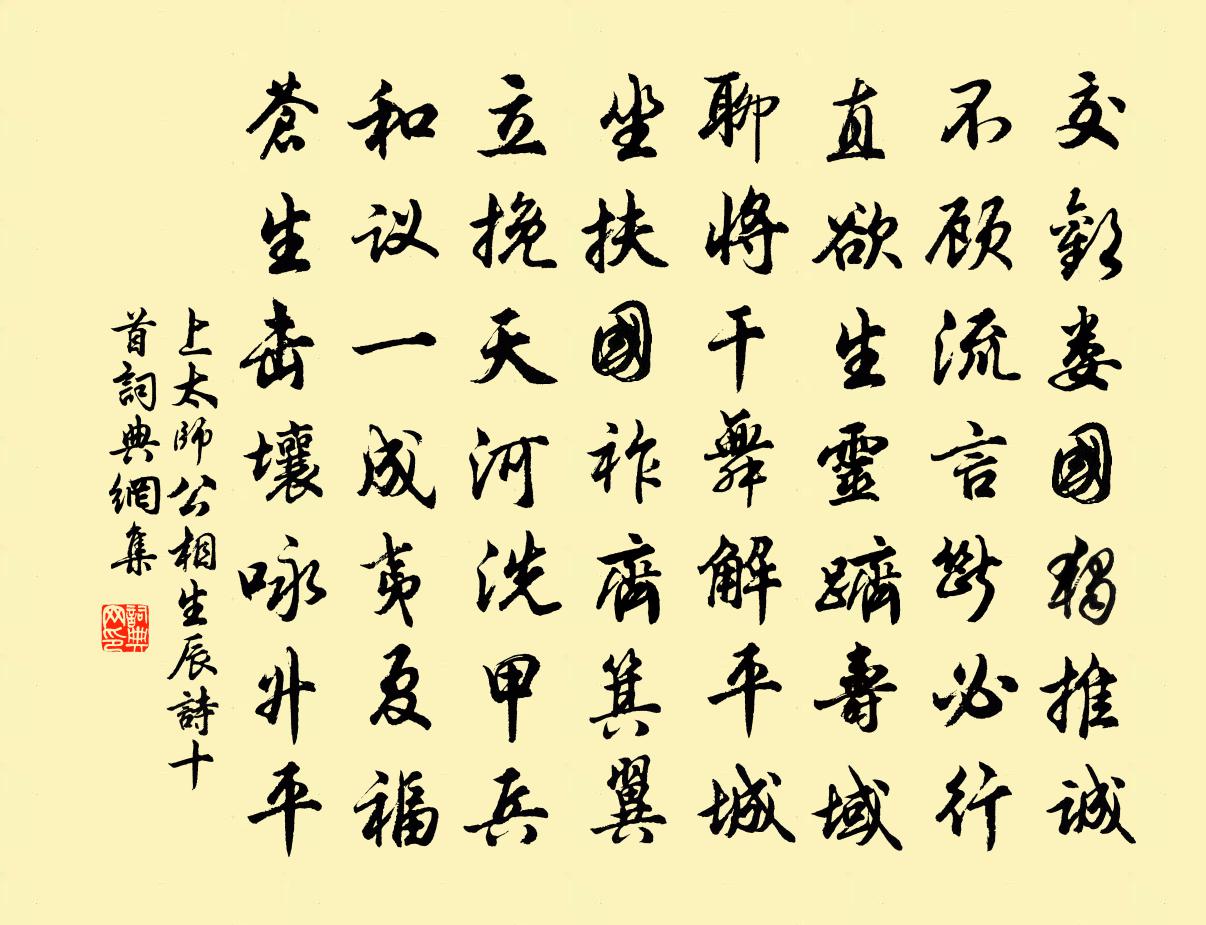 交歡娄國獨推誠
不顾流言断必行
直欲生靈躋壽域
聊將干舞解平城
坐扶國祚齊箕翼
立挽天河洗甲兵
和议一成夷夏福
蒼生击壤咏升平
上太師公相生辰詩十
首詞典網集
詞典网印